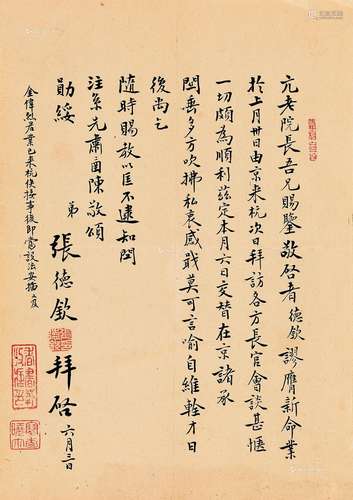 亢老院長吾兄賜鑒敬啓者德欽謬膺新命業
於上月卅日由京来杭次日拜訪各方長官會談甚愜
一切頗為順利茲定本月六日交替在京諸承
關垂多方吹拂私衷感戢莫可言喻自維輇才日
後尚乞
隨時賜教以匡不逮知関
注系先肅函陳敬頌
勛綏
弟張德欽拜啓六月三日
金偉烈君業已来杭俟接事後即當設法安插又及